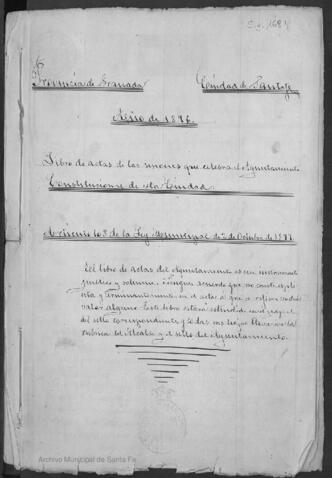 Provincia de Granada
Ciudad de Santafe
Año de 1886
Libro de actas de las sesiones que celebra el Ayuntamiento
Constitucional de esta Ciudad
Articulo 108 de la Ley Municipal de 2 de Octubre de 1877
El libro de actas del Ayuntamiento es un instrumento
publico y solemne. Ningun acuerdo que no conste
y terminantemente en el acta a que se refiera tendrá
valor alguno. Este libro estará estendido en el papel
del sello correspondiente y todas sus hojas llevarán la
rúbrica del Alcalde y el sello del Ayuntamiento.
Archivo Municipal de Santa Fe